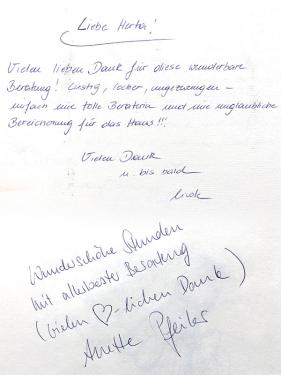 Liebe Herta!
Vielen lieben Dank für diese wunderbare
Beratung! Lustig, locker, ungezwungen -
einfach eine tolle Beraterin und eine unglaubliche
Bereicherung für das Haus!!!
Vielen Dank
u. bis bald
Wunderschöne Stunden
mit allerbester Beratung
(vielen ♡-lichen Dank)
Anette Pfeiler